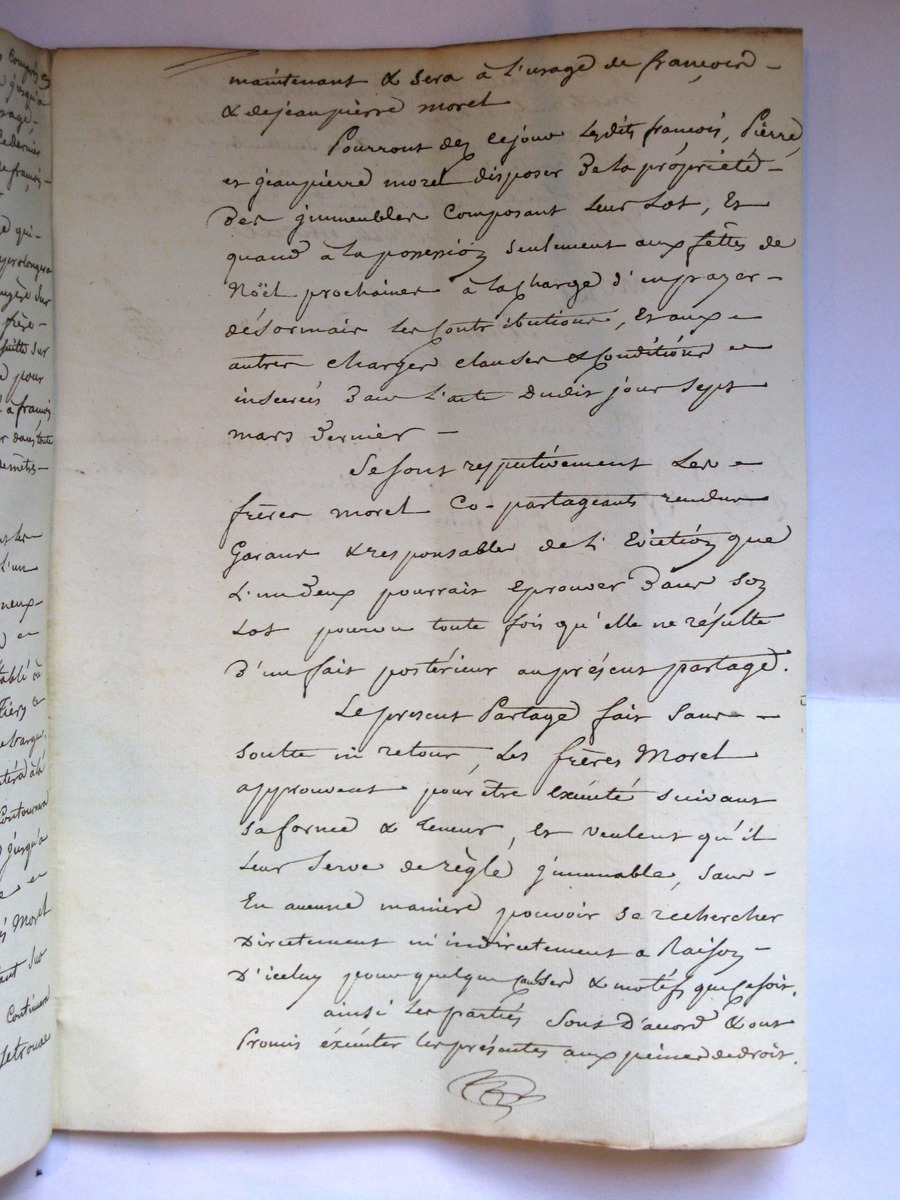 maintenant & sera à l'usage de françois -
& de jeanpierre moret
Pourront dez ce jour lesdits françois, Pierre
et jeanpierre moret disposer de la propriété -
des jmmeubles composant leur lot, Et
quand à la possession seulement aux fêtes de
Noël prochaines à la charge d'en payer -
désormais les contributions, Et aux -
autres charges clauses & Conditions -
inserées dans l'acte dudit jour sept
mars dernier -
Se sont respectivement Les -
frères moret Co-partageants rendus
Garans & responsables de l'Eviction que
L'un d'eux pourrait Eprouver dans son
Lot pourvu toute fois qu'elle ne résulte
D'un fait postérieur au présent partage.
Le present Partage fait sans -
soulte ni retour, Les frères Moret
approuvent pour être Exécuté suivant
sa forme & teneur, Et veulent qu'il
leur serve de règle jmmuable, sans -
En aucune manière pouvoir se rechercher
Directement ni indirectement a Raison -
D'iceluy pour quelque causes & motifs que ce soit.
ainsi les parties sont D'accord & ont
Promis éxécuter les présentes aux peines de droit.
compris
jusqu'a
de françois
qui -
prolongera
frère -
suitte sur
pour
à françois
dans toute
L'un
neux -
en
à la
Contournera
jusqu'a
en
Moret
sur
Continuera
se trouve